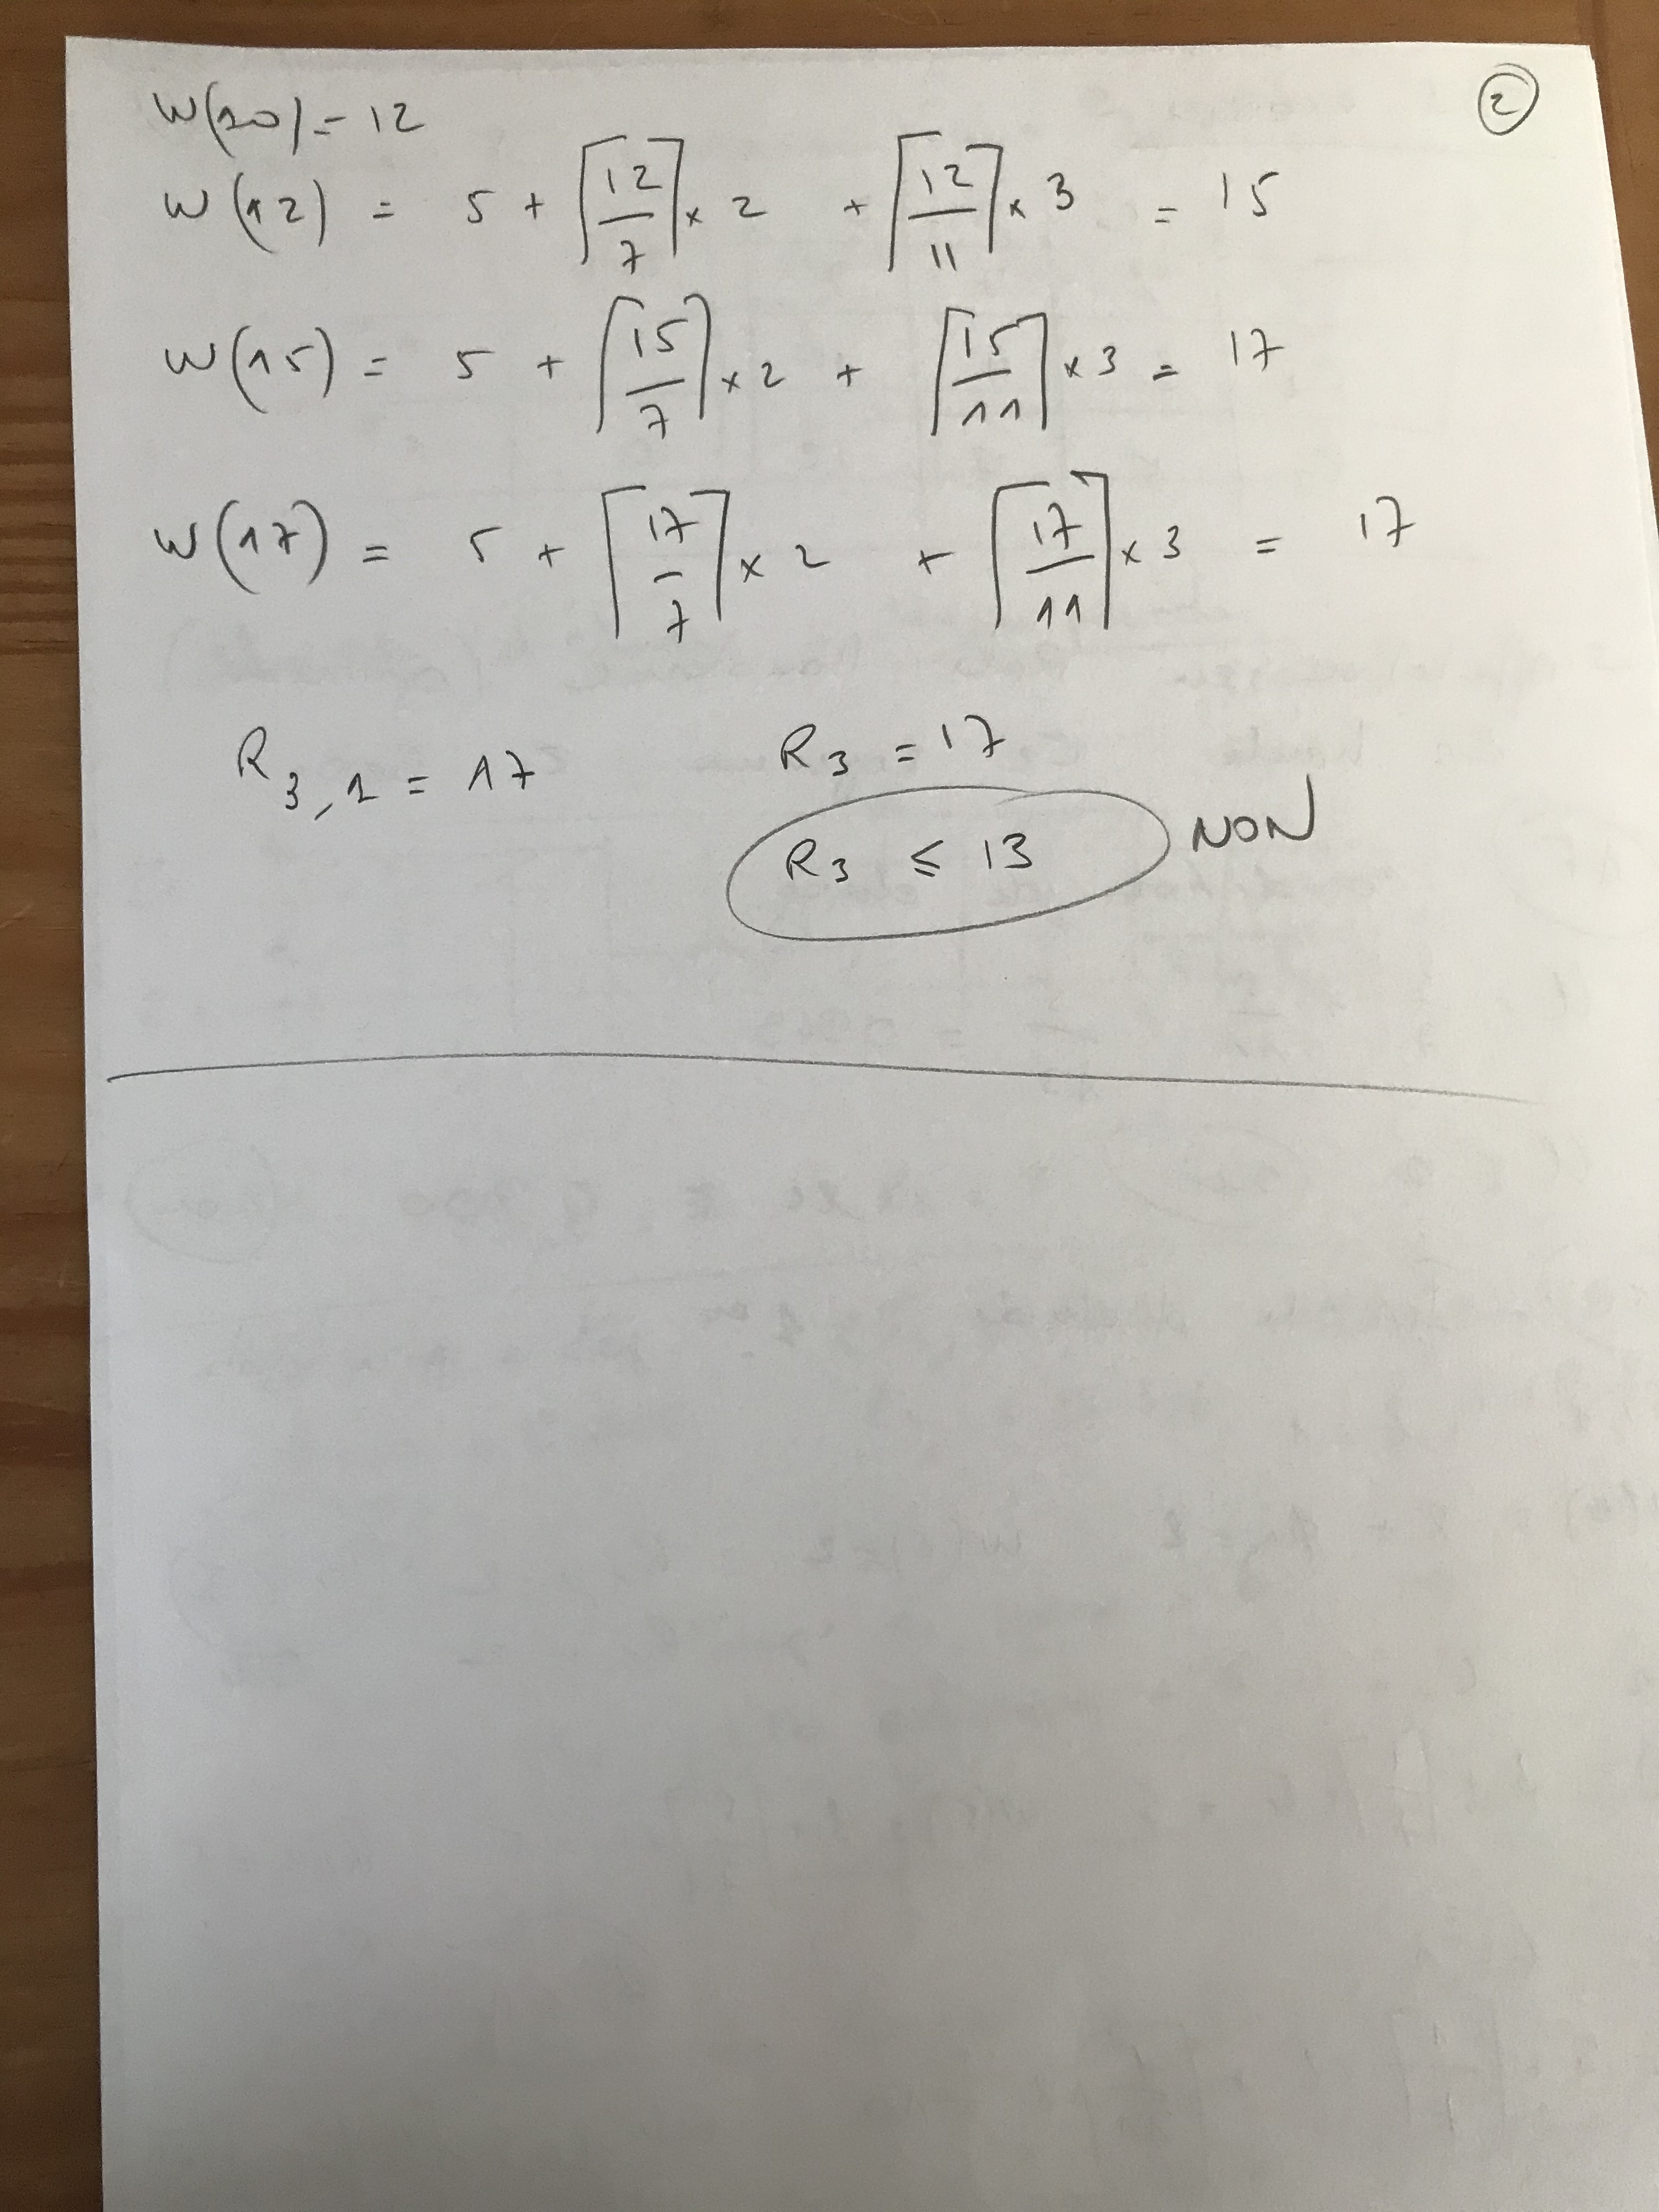 ②
W(10) = 12
W(12) = 5 + ⌈12/7⌉ × 2 + ⌈12/11⌉ × 3 = 15
W(15) = 5 + ⌈15/7⌉ × 2 + ⌈15/11⌉ × 3 = 17
W(17) = 5 + ⌈17/7⌉ × 2 + ⌈17/11⌉ × 3 = 17
R3,1 = 17 R3 = 17
R3 ≤ 13 NON